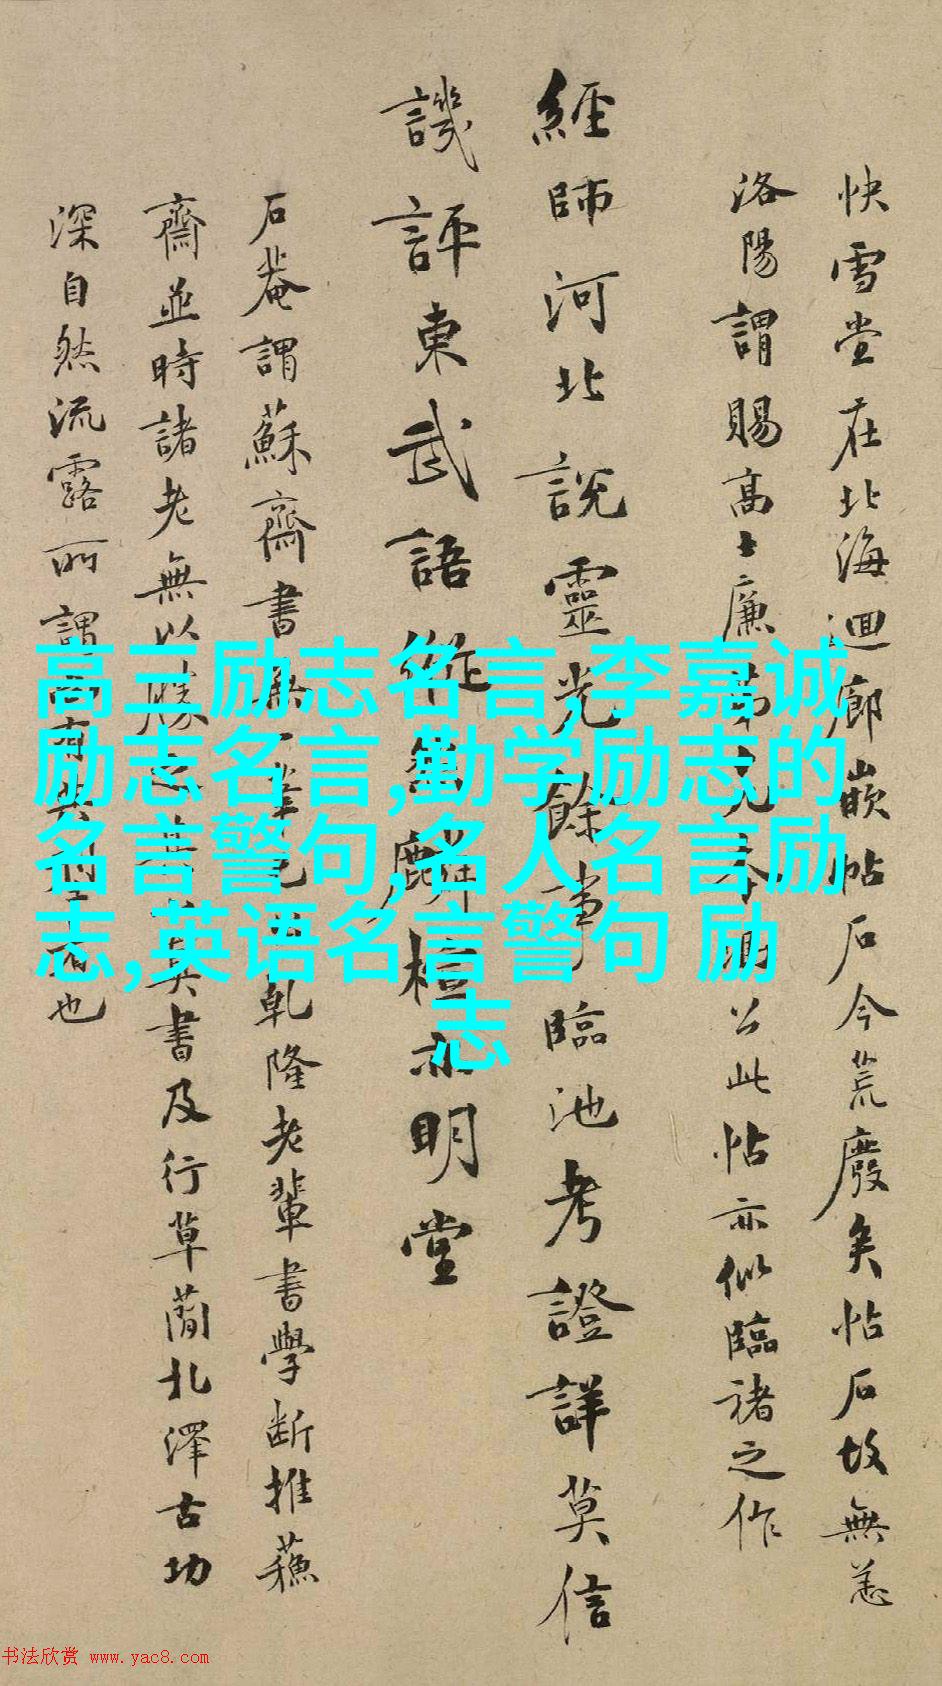 快雪堂在北海迴廊嵌帖石今荒廢矣帖石故無恙
洛陽謂賜高士廉
公此帖亦似臨褚之作
經師河北說靈光餘事臨池考證詳莫信
譏評東武語
麟檀亦明堂
石菴謂蘇齋書無一筆
乾隆老輩書學斷推蘓
齋並時諸老無以勝之
其書及行草蘭北澤古功
深自然流露所謂
也
高三励志名言,李嘉诚
励志名言,勤学励志的
名言警句,名人名言励
志,英语名言警句 励
志
书法欣赏 www.yac8.com